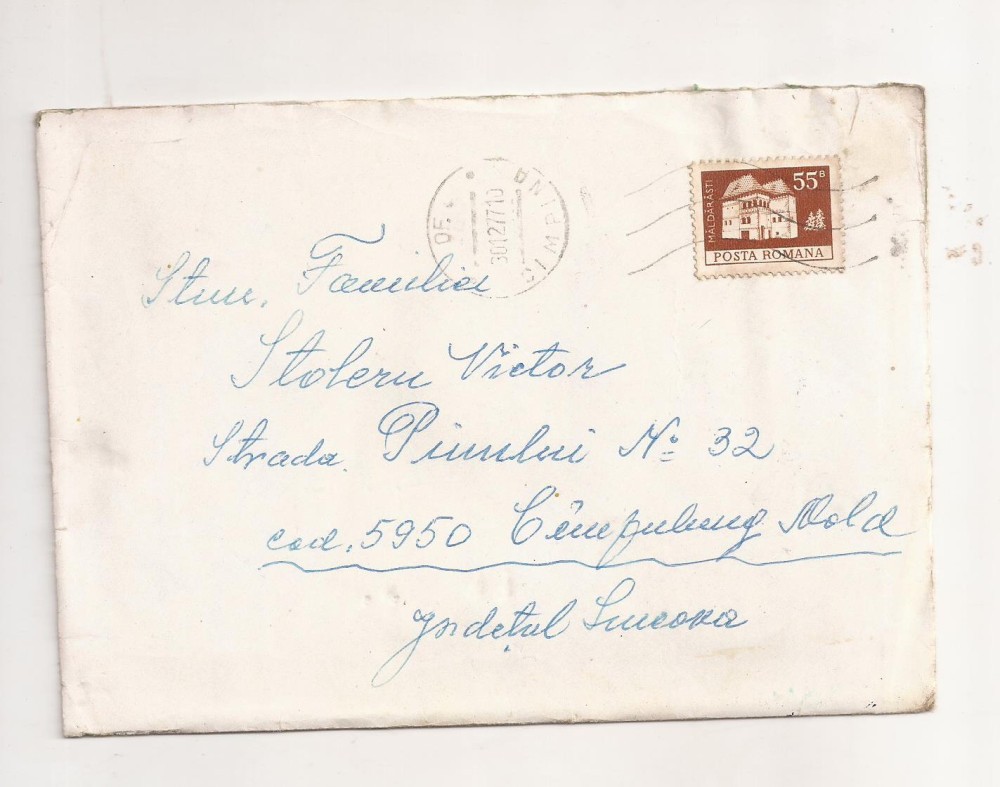 OF. CIMPINA
30127710
MĂLDĂRĂSTI
55B
POSTA ROMANA
Stim. Familiei
Stoleru Victor
Strada Pinului No 32
cod. 5950 Cîmpulung Mold
Județul Suceava